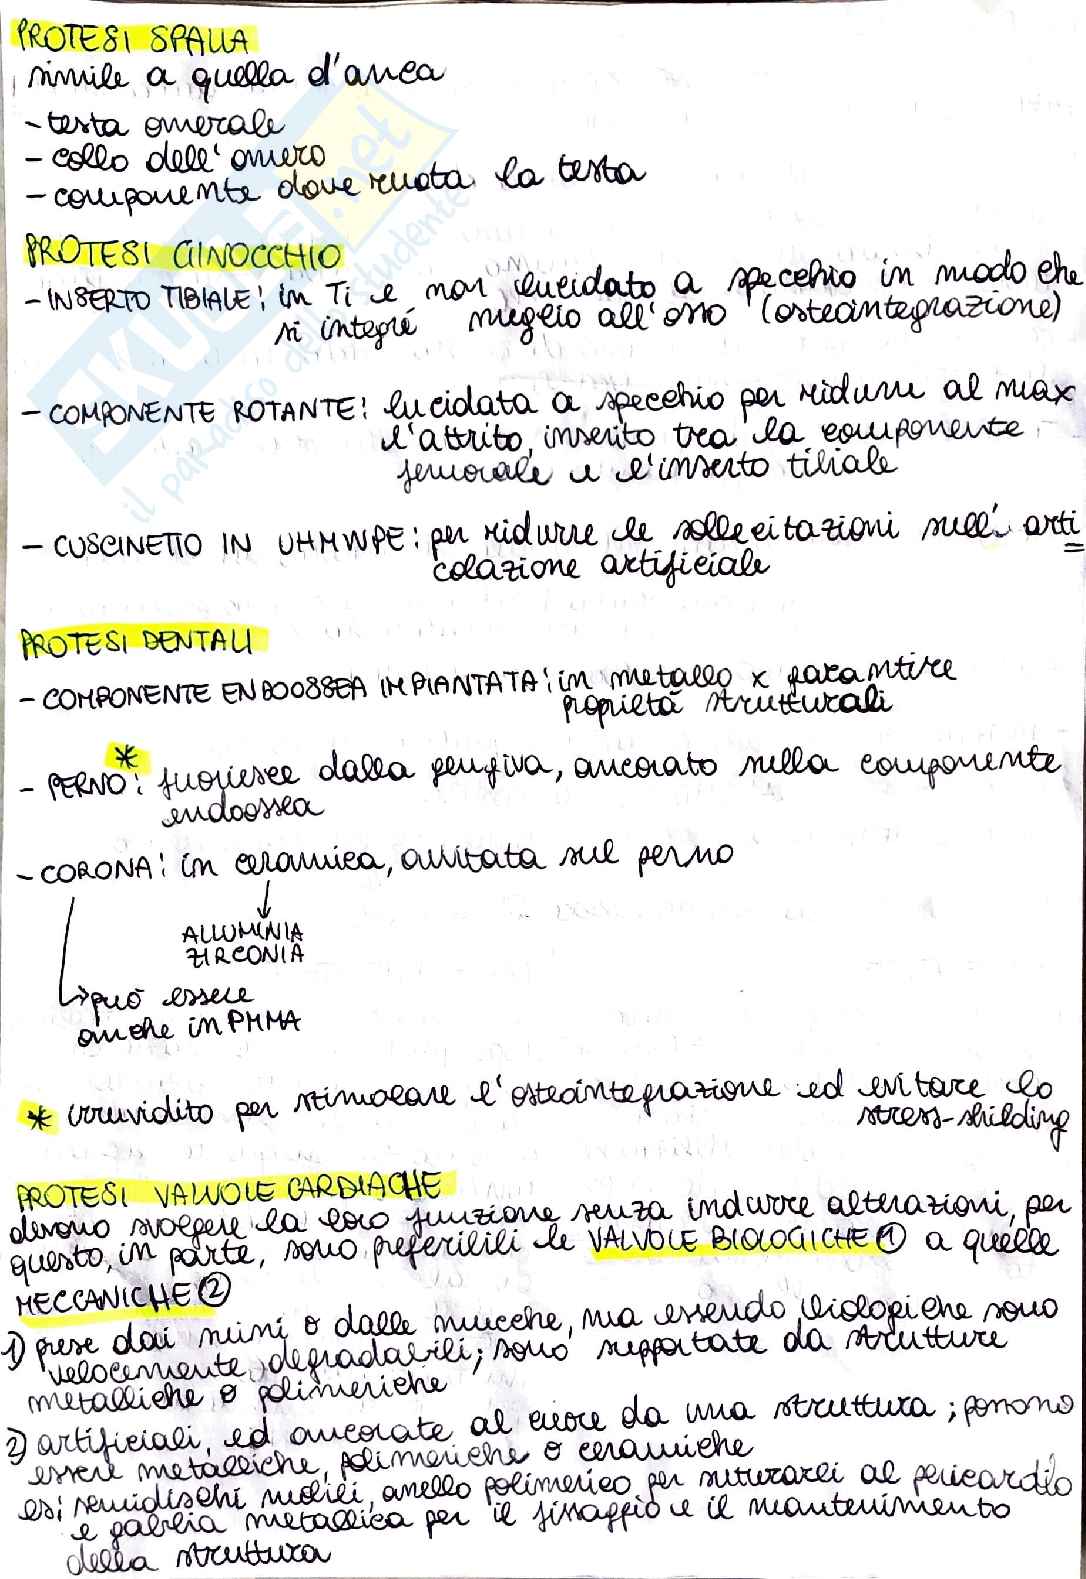 PROTESI SPALLA
simile a quella d'anca
- testa omerale
- collo dell'omero
- componente dove ruota la testa
PROTESI GINOCCHIO
- INSERTO TIBIALE: in Ti e non lucidato a specchio in modo che
si integri meglio all'osso (osteointegrazione)
- COMPONENTE ROTANTE: lucidata a specchio per ridurre al max
l'attrito, inserito tra la componente
femorale e l'inserto tibiale
- CUSCINETTO IN UHMWPE: per ridurre le sollecitazioni sull'arti
colazione artificiale
PROTESI DENTALI
- COMPONENTE ENDOOSSEA IMPIANTATA: in metallo x garantire
proprietà strutturali
- PERNO*: fuoriesce dalla gengiva, ancorato nella componente
endoossea
- CORONA: in ceramica, avvitata sul perno
ALLUMINIA
ZIRCONIA
può essere
anche in PMMA
* irruvidito per stimolare l'osteointegrazione ed evitare lo
stress-shilding
PROTESI VALVOLE CARDIACHE
devono svolgere la loro funzione senza indurre alterazioni, per
questo, in parte, sono preferibili le VALVOLE BIOLOGICHE ① a quelle
MECCANICHE ②
1) prese dai suini o dalle mucche, ma essendo biologiche sono
velocemente degradabili; sono supportate da strutture
metalliche o polimeriche
2) artificiali, ed ancorate al cuore da una struttura; possono
essere metalliche, polimeriche o ceramiche
es: semidischi mobili, anello polimerico per suturarli al pericardio
e gabbia metallica per il fissaggio e il mantenimento
della struttura
SKUOLA.net
il paradiso dello studente